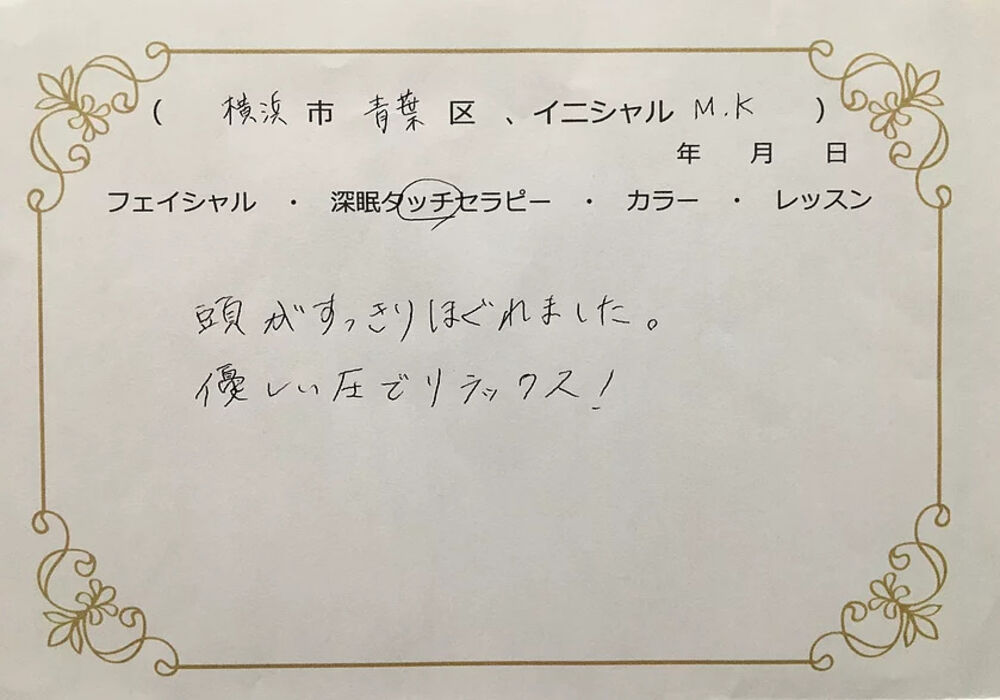 ( 横浜 市 青葉 区 、イニシャル M.K )
年 月 日
フェイシャル ・ 深眠タッチセラピー ・ カラー ・ レッスン
頭がすっきりほぐれました。
優しい圧でリラックス!